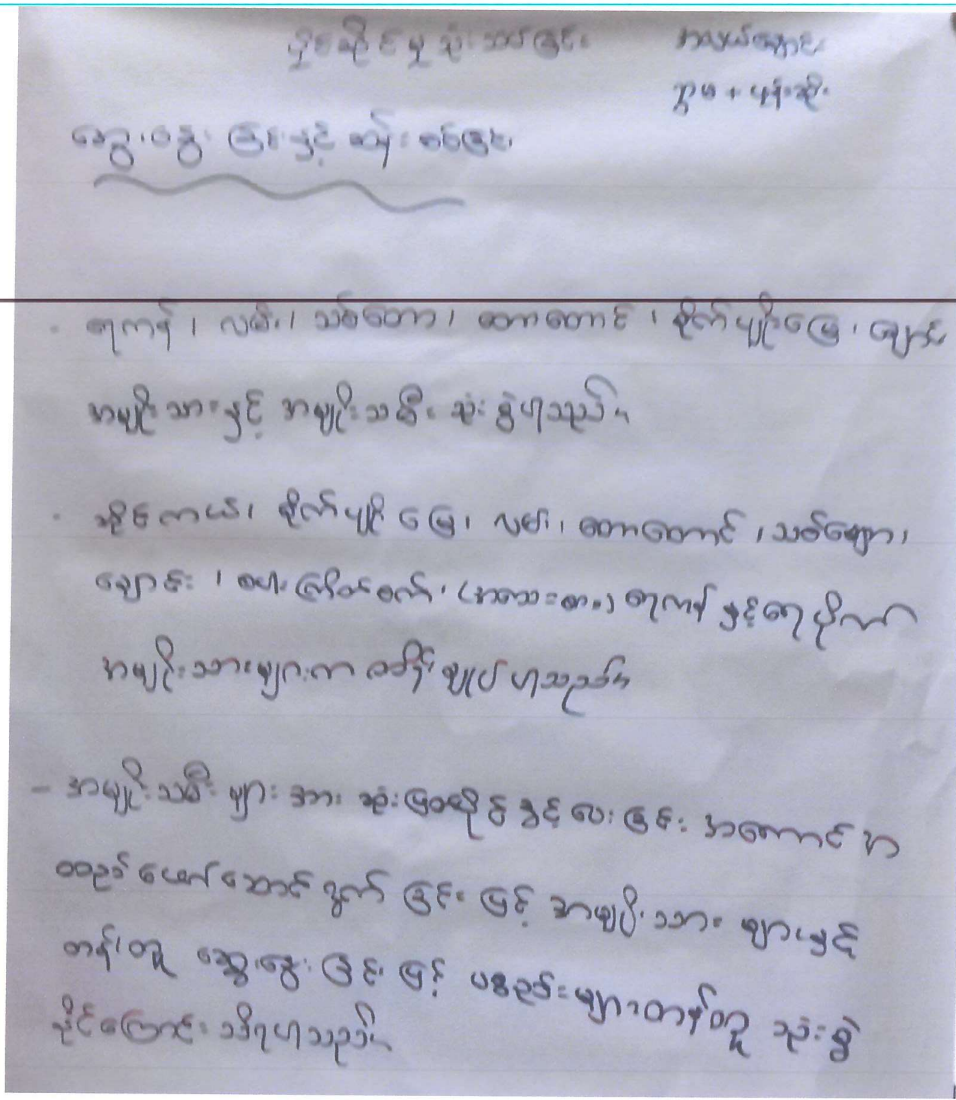 ပိုင်ဆိုင်မှု သုံးသပ်ခြင်း အလယ်ချောင်း
ဘူမ + ပုန်းဆိုး
ဆွေးနွေးခြင်းနှင့် ဆန်းစစ်ခြင်း
· ရေကန်၊ လမ်း၊ သစ်တော၊ တောတောင်၊ စိုက်ပျိုးမြေ၊ ချောင်း
အမျိုးသားနှင့် အမျိုးသမီး သုံးစွဲပါသည်။
· ဆိုင်ကယ်၊ စိုက်ပျိုးမြေ၊ လမ်း၊ တောတောင်၊ သစ်မျော၊
ချောင်း၊ စပါးကြိတ်စက်၊ (အသေးစား) ရေကန်နှင့်ရေပိုက်
အမျိုးသားများက ထိန်းချုပ်ပါသည်။
- အမျိုးသမီးများအား သုံးစွဲပိုင်ခွင့်ပေးခြင်း အကောင်အ
ထည်ဖော်ဆောင်ရွက်ခြင်းဖြင့် အမျိုးသားများနှင့်
တန်းတူ ဆွေးနွေးခြင်းဖြင့် ပစ္စည်းများတန်းတူ သုံးစွဲ
နိုင်ကြောင်း သိရပါသည်။